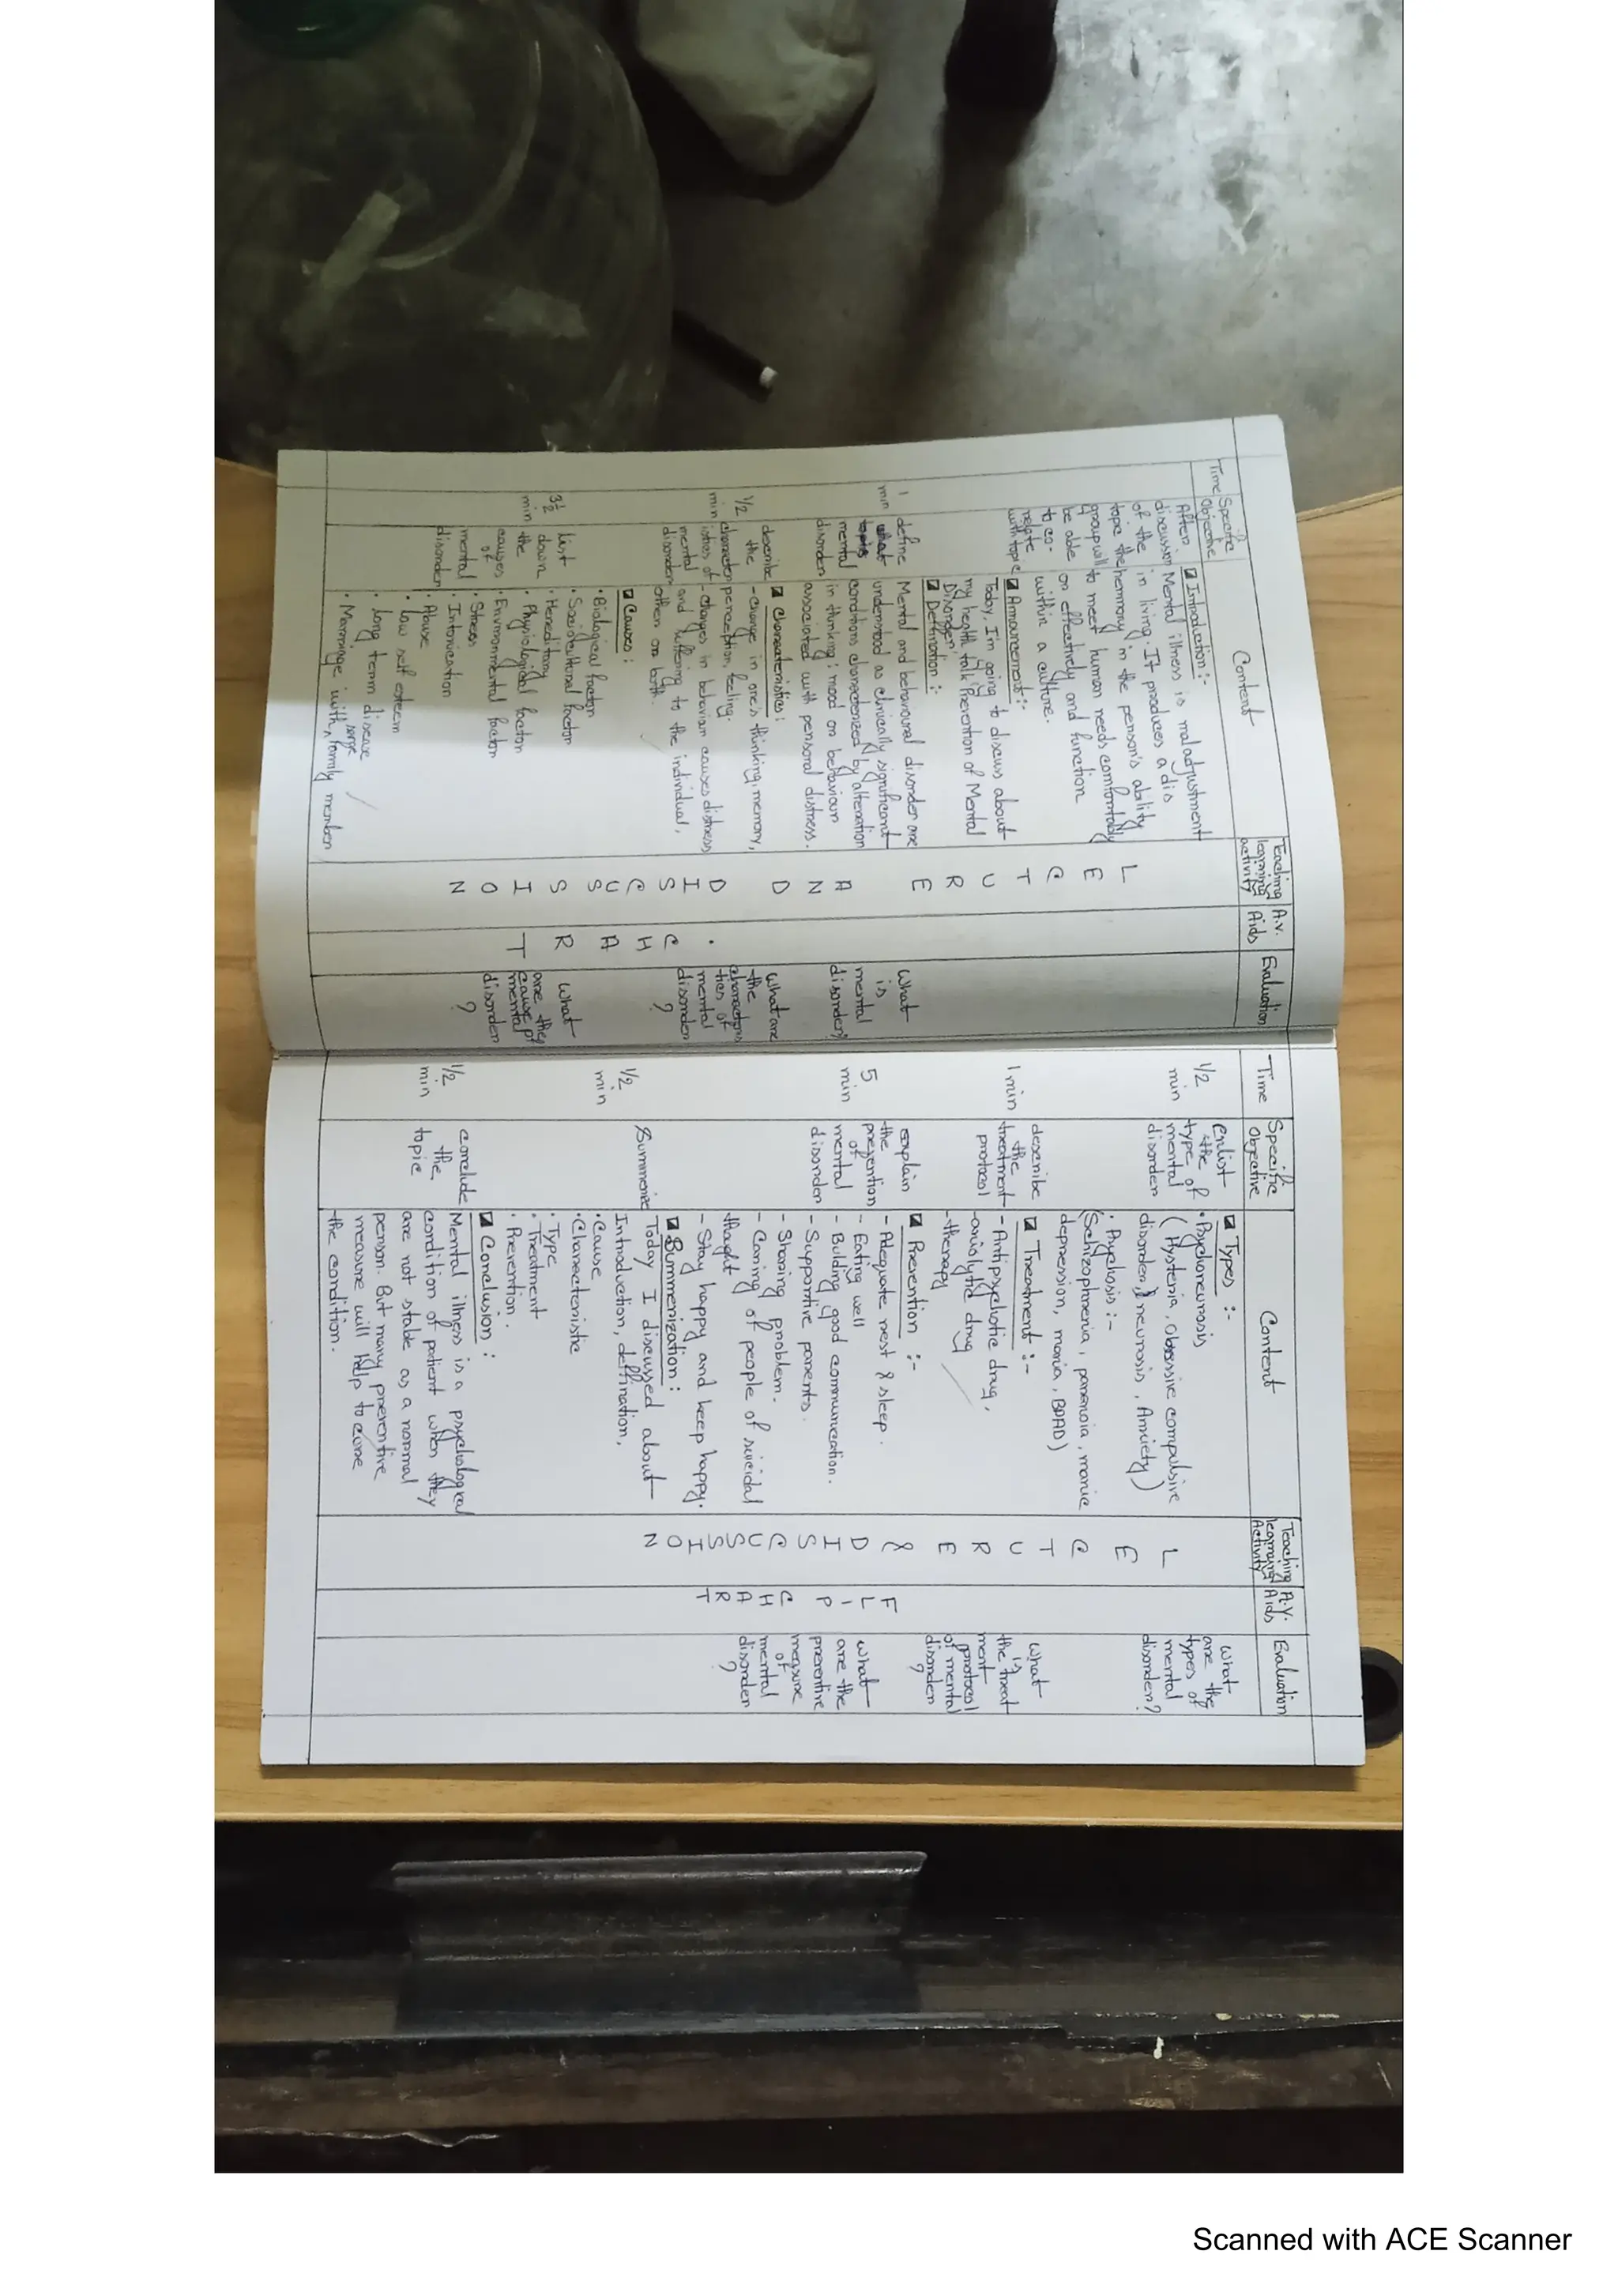 Time
Specific
Objective
Content
Teaching
learning
activity
A.v.
Aids
Evaluation
After
discussion
of the
topic the
group will
be able
to co-
relate
with topic
Introduction :-
Mental illness is maladjustment
in living. It produces a dis
hermony in the person's ability
to meet human needs comfortably
or effectively and function
within a culture.
Announcement :-
Today, I'm going to discuss about
my health talk 'Prevention of Mental
Disorder'.
1
min
define
what
mental
disorder
Deffination :
Mental and behavioural disorder are
understood as clinically significant
conditions characterized by alteration
in thinking; mood or behaviour
associated with personal distress.
What
is
mental
disorder?
1/2
min
describe
the
character
istics of
mental
disorder
Characteristics :
- change in one's thinking, memory,
perception, feeling.
- changes in behavior causes distress
and suffering to the individual,
other or both.
What are
the
characteris
tics of
mental
disorder
?
3 1/2
min
list
down
the
causes
of
mental
disorder
Causes :
• Biological factor
• Sociocultural factor
• Hereditary
• Physiological factor
• Environmental factor
• Stress
• Intoxication
• Abuse
• low self esteem
• Long term disease
• Marriage with same family member
What
are the
cause of
mental
disorder
?
L
E
C
T
U
R
E
A
N
D
D
I
S
C
U
S
S
I
O
N
C
H
A
R
T
Time
Specific
Objective
Content
Teaching
learning
Activity
A.V.
Aids
Evaluation
1/2
min
enlist
the
type of
mental
disorder
Types :-
• Psychoneurosis
(Hysteria, obsessive compulsive
disorder, neurosis, Anxiety)
• Psychosis :-
(Schizophrenia, paranoia, manic
depression, mania, BPAD)
What
are the
types of
mental
disorder?
1 min
describe
the
treatment
protocol
Treatment :-
- Antipsychotic drug,
- anxiolytic drug
- therapy
What
is
the treat
ment
protocol
of mental
disorder
?
5
min
explain
the
prevention
of
mental
disorder
Prevention :-
- Adequate rest & sleep.
- Eating well
- Building good communication.
- Supportive parents.
- Sharing problem.
- Caring of people of suicidal
thought
- Stay happy and keep happy.
What
are the
preventive
measure
of
mental
disorder
?
1/2
min
Summerize
Summerization :
Today I discussed about
Introduction, deffination,
• Cause
• Characteristic
• Type
• Treatment
• Prevention.
1/2
min
conclude
the
topic
Conclusion :
Mental illness is a psychological
condition of patient when they
are not stable as a normal
person. But many preventive
measure will help to cure
the condition.
L
E
C
T
U
R
E
&
D
I
S
C
U
S
S
I
O
N
F
L
I
P
C
H
A
R
T
Scanned with ACE Scanner